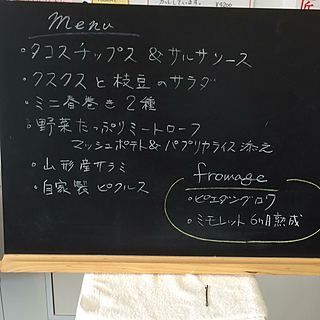 menu
・タコスチップス&サルサソース
・クスクスと枝豆のサラダ
・ミニ春巻き2種
・野菜たっぷりミートローフ
マッシュポテト&パプリカライス添え
・山形産サラミ
・自家製ピクルス
fromage
・ピエダングロワ
・ミモレット6ヶ月熟成